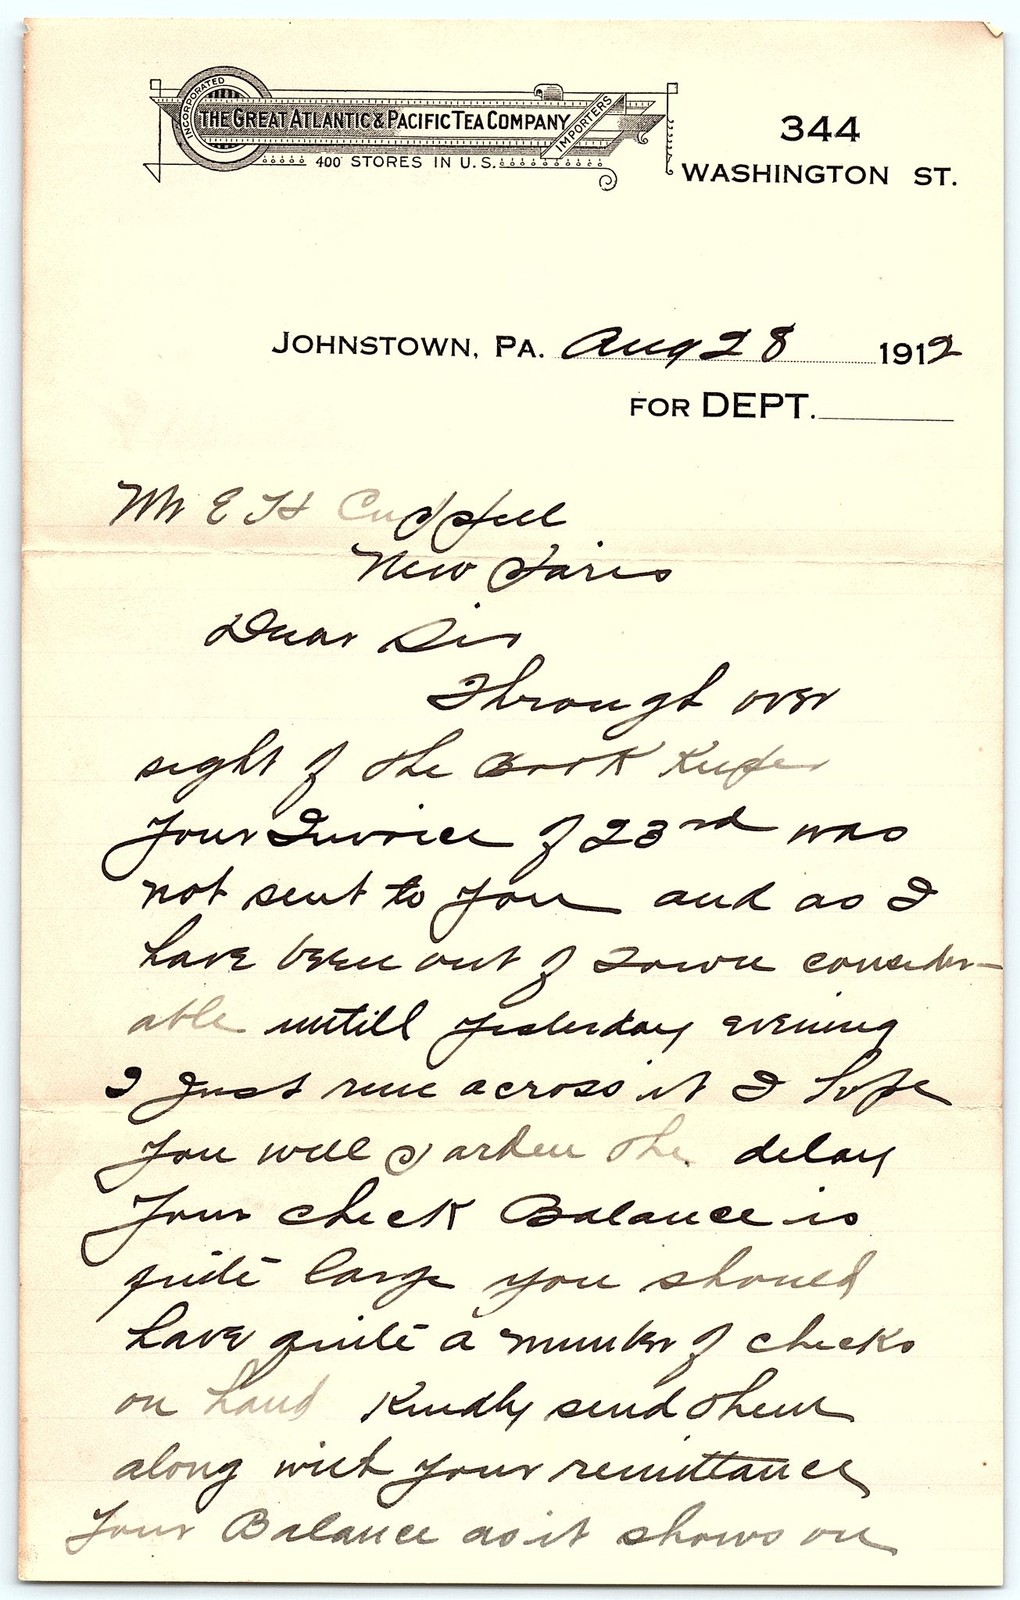 INCORPORATED
THE GREAT ATLANTIC & PACIFIC TEA COMPANY
IMPORTERS
400 STORES IN U.S.
344
WASHINGTON ST.
JOHNSTOWN, PA. Aug 28 1912
FOR DEPT.
Mr E H Cuppell
New Paris
Dear Sir
Through over
sight of the Book Keeper
your Invoice of 23rd was
not sent to you and as I
have been out of Town consider-
able untill yesterday evening
I Just run across it I hope
you will parden the delay
Your check Balance is
quite large you should
have quite a number of checks
on hand Kindly send them
along with your remittance
Your Balance as it shows on